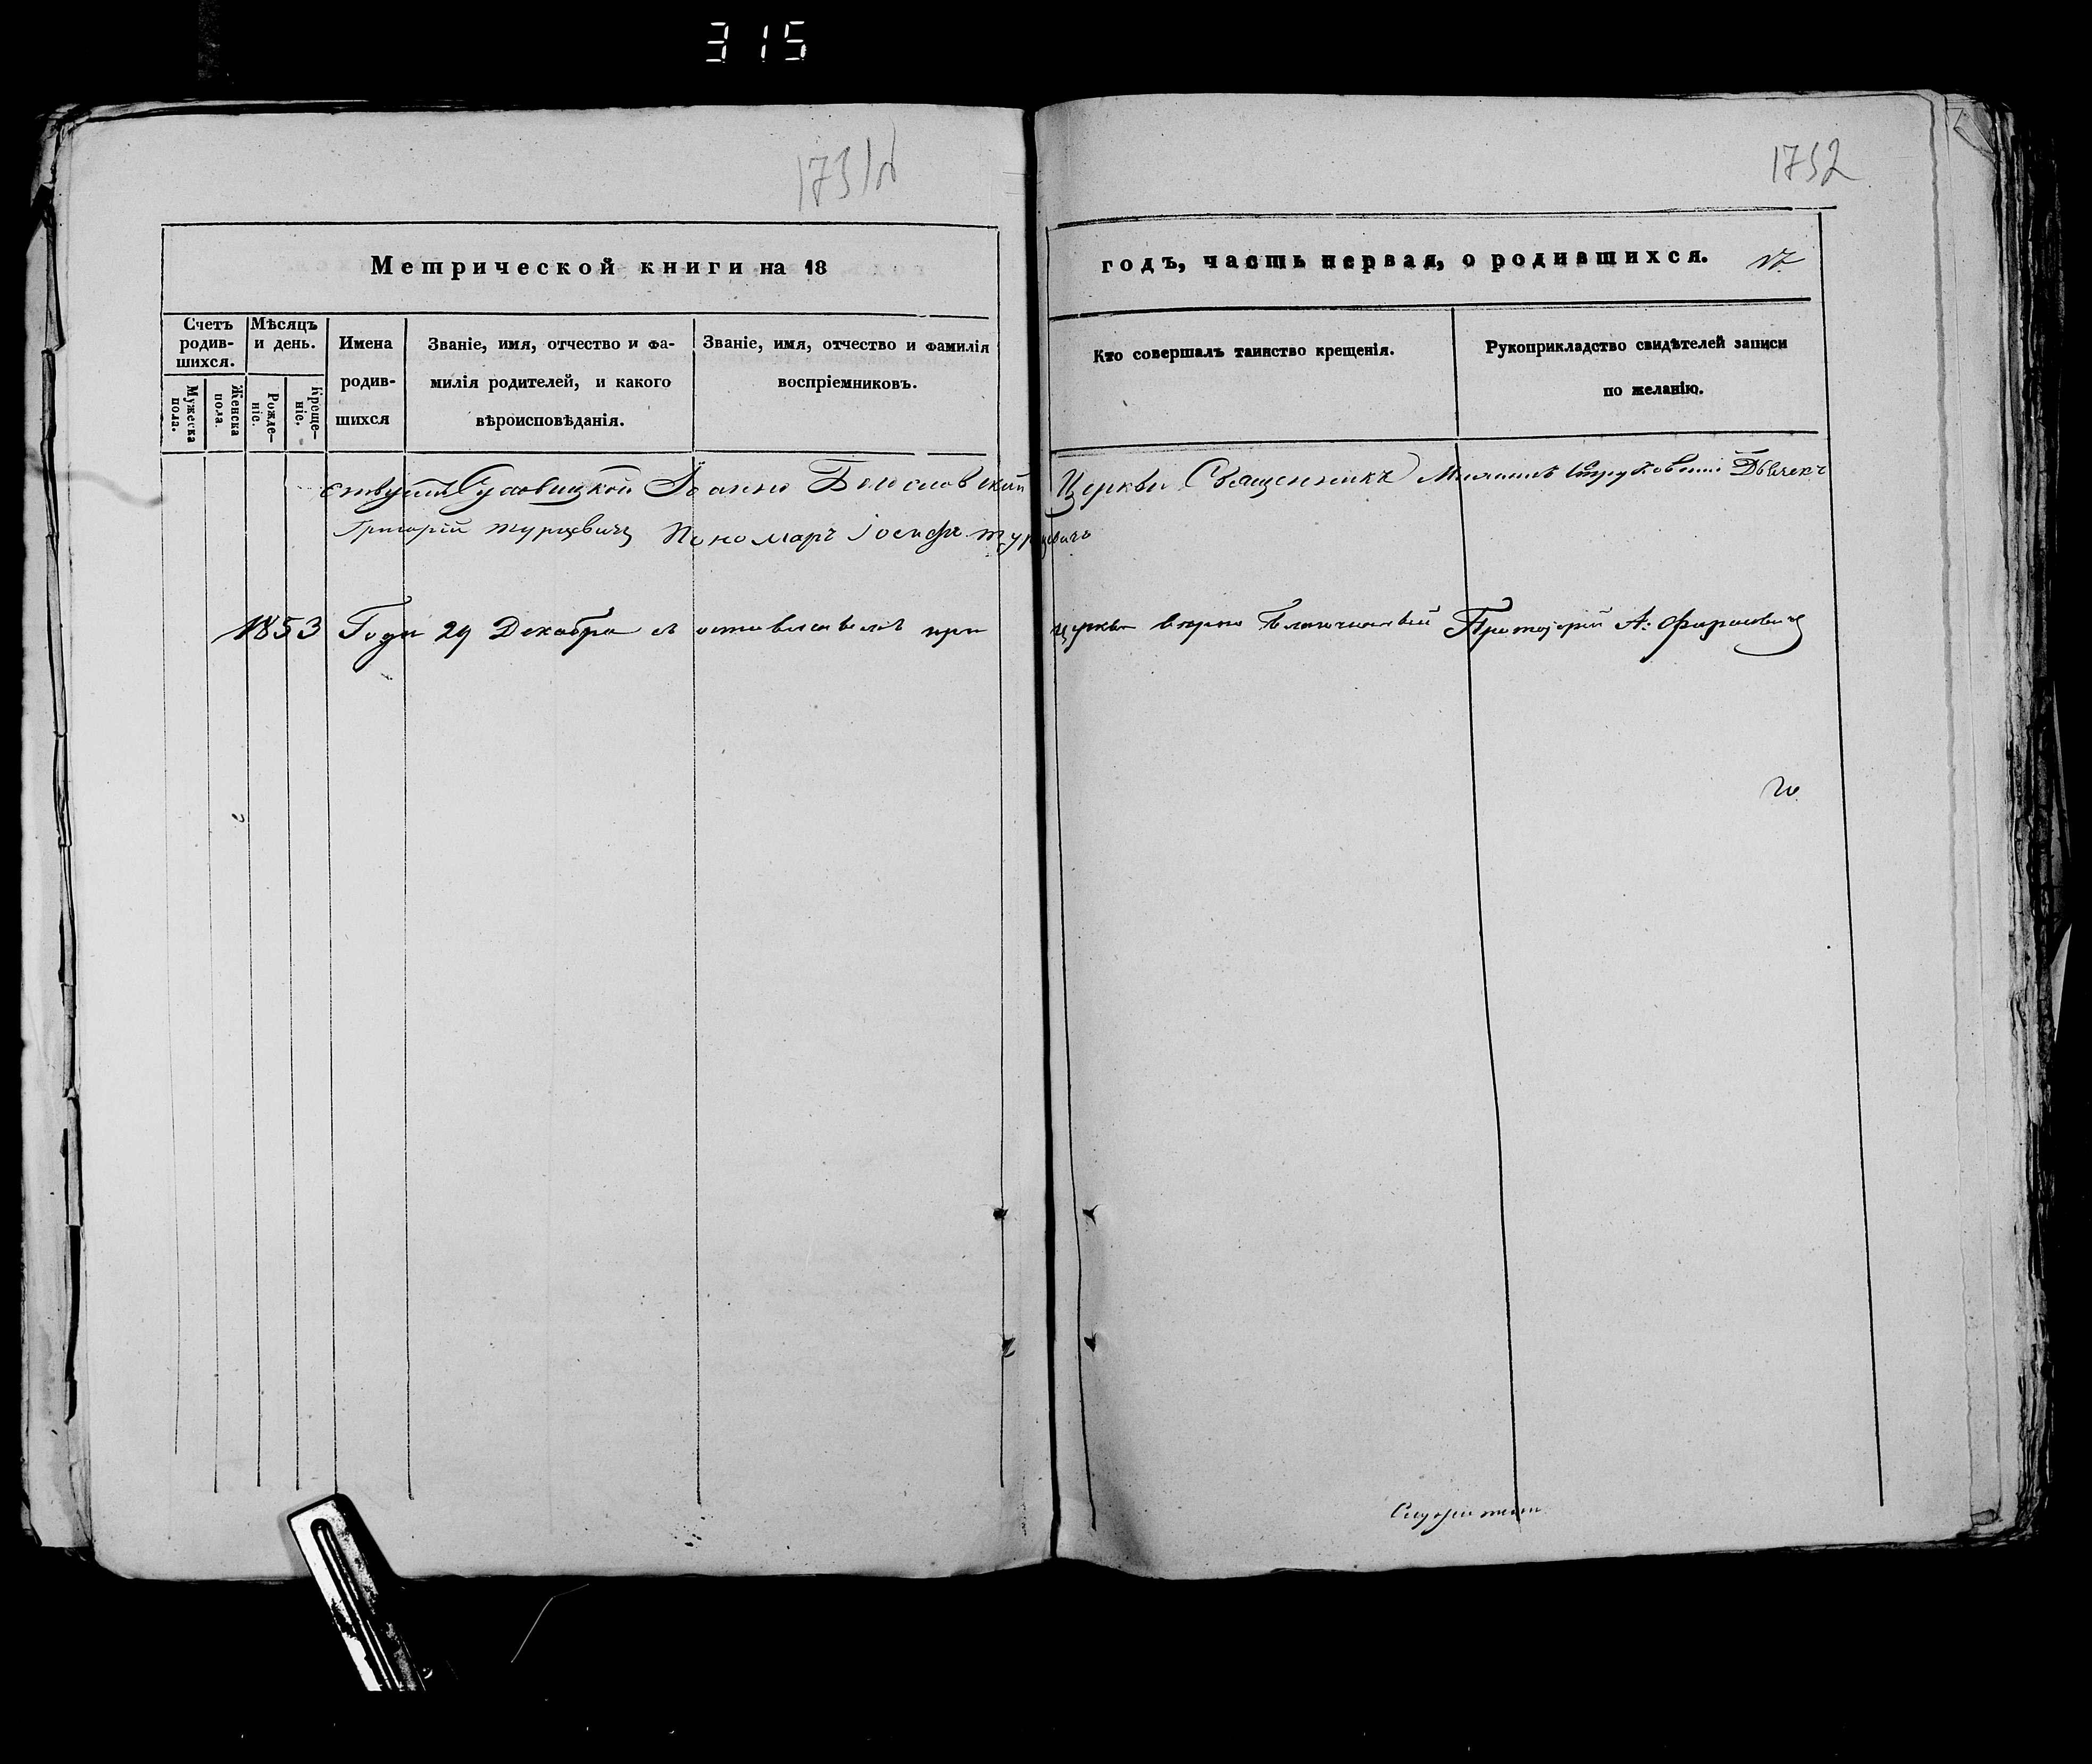 315
1732
Метрической книги на 18
годъ, часть первая, о родившихся.
Счетъ родив-шихся.
Мужеска пола.
Женска пола.
Мѣсяцъ и день.
Рожде-ніе.
Креще-ніе.
Имена
родив-
шихся
Званіе, имя, отчество и фа-
милія родителей, и какого
вѣроисповѣданія.
Званіе, имя, отчество и фамилія
воспріемниковъ.
Кто совершалъ таинство крещенія.
Рукоприкладство свидѣтелей записи
по желанію.
Іоанно Богословской Церкви Священникъ Дьячекъ
Григорій Турцевичъ Пономарь Іосифъ Турцевичъ
1853 Года 29 Декабря при церкви вѣрно Благочинный Протоіерей А: